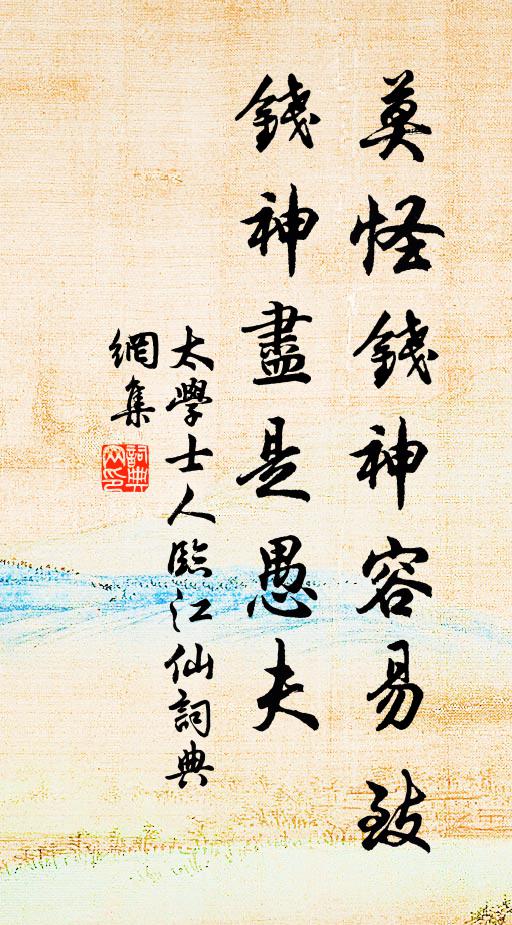 莫怪錢神容易致
錢神盡是愚夫
太學士人臨江仙詞典
網集
詞典
网印